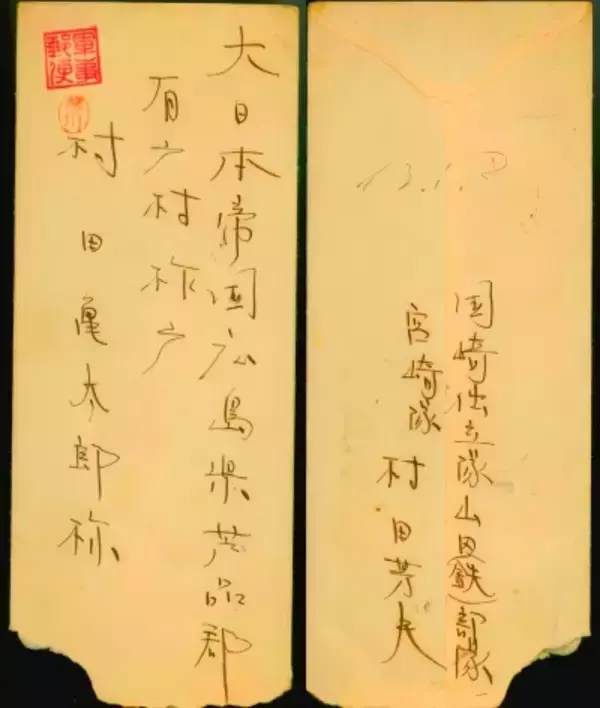 軍事
郵便
大日本帝国広島県芦品郡
有广村柞广
村田亀太郎様
国崎独立隊山田(鉄)部隊
宮崎隊
村田芳夫